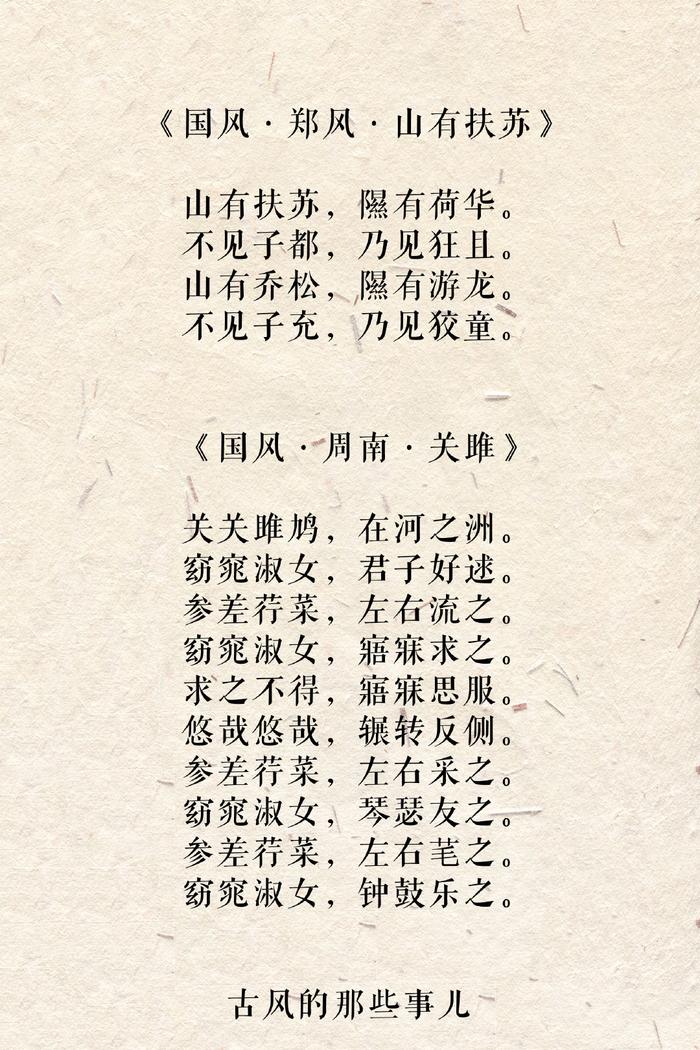 《国风·郑风·山有扶苏》
山有扶苏，隰有荷华。
不见子都，乃见狂且。
山有乔松，隰有游龙。
不见子充，乃见狡童。
《国风·周南·关雎》
关关雎鸠，在河之洲。
窈窕淑女，君子好逑。
参差荇菜，左右流之。
窈窕淑女，寤寐求之。
求之不得，寤寐思服。
悠哉悠哉，辗转反侧。
参差荇菜，左右采之。
窈窕淑女，琴瑟友之。
参差荇菜，左右芼之。
窈窕淑女，钟鼓乐之。
古风的那些事儿